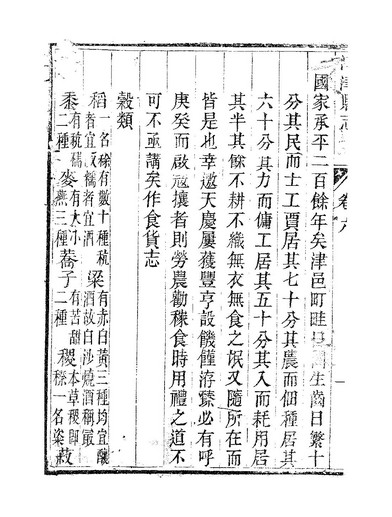 江津縣志 卷六
國家承平二百餘年矣津邑町畦 生齒日繁十
分其民而士工賈居其七十分其農而佃種居其
六十分其力而傭工居其五十分其入而耗用居
其半其餘不耕不織無衣無食之氓又隨所在而
皆是也幸邀天慶屢獲豐亨設饑饉洊臻必有呼
庚癸而啟寇攘者則勞農勸稼食時用禮之道不
可不亟講矣作食貨志
穀類
稻一名稌有數十種秔者宜飯糯者宜酒 粱有赤白黃三種均宜釀酒故白沙燒酒稱最
黍有秔糯二種 麥有大小燕三種 蕎子有苦甜二種 稷本草稷即穄一名粢 菽